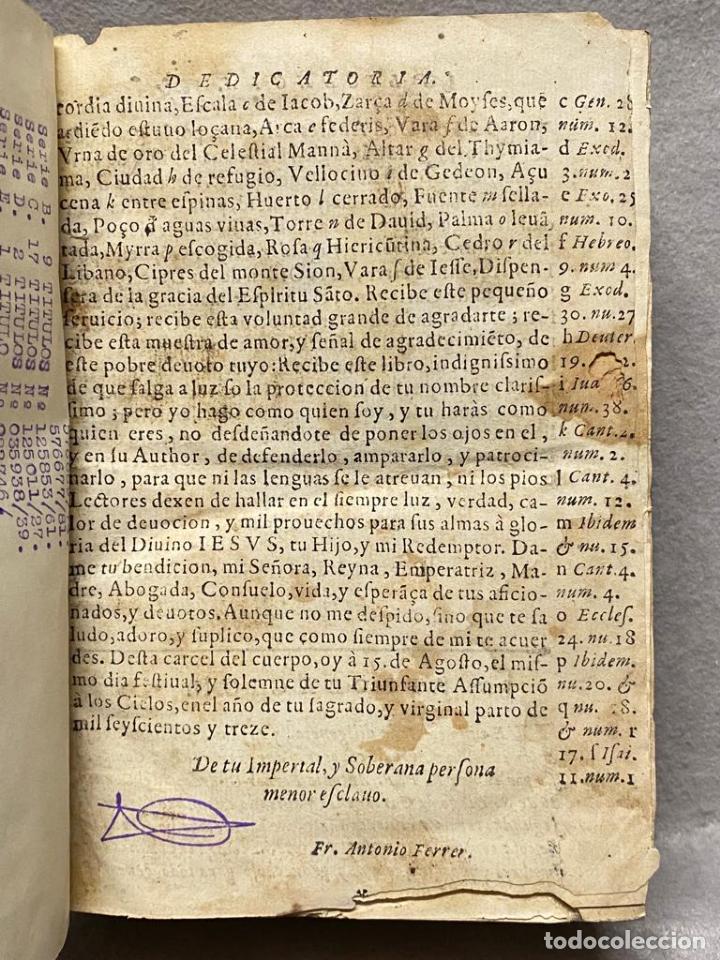 DEDICATORIA.
cordia diuina, Escala c de Iacob, Zarça d de Moyses, que
ardiẽdo estuuo loçana, Arca e federis, Vara f de Aaron,
Vrna de oro del Celestial Mannà, Altar g del Thymia-
ma, Ciudad h de refugio, Vellocino i de Gedeon, Açu
cena k entre espinas, Huerto l cerrado, Fuente m sella-
da, Poço đ aguas viuas, Torre n de Dauid, Palma o leuã
tada, Myrra p escogida, Rosa q Hiericũtina, Cedro r del
Libano, Cipres del monte Sion, Vara s de Iesse, Dispen-
sera de la gracia del Espiritu Sãto. Recibe este pequeño
seruicio; recibe esta voluntad grande de agradarte; re-
cibe esta muestra de amor, y señal de agradecimiẽto, de
este pobre deuoto tuyo: Recibe este libro, indignissimo
de que salga a luz so la proteccion de tu nombre claris-
simo; pero yo hago como quien soy, y tu haràs como
quien eres, no desdeñandote de poner los ojos en el,
y en su Author, de defenderlo, ampararlo, y patroci-
narlo, para que ni las lenguas se le atreuan, ni los pios
Lectores dexen de hallar en el siempre luz, verdad, ca-
lor de deuocion, y mil prouechos para sus almas à glo-
ria del Diuino IESVS, tu Hijo, y mi Redemptor. Da-
me tu bendicion, mi Señora, Reyna, Emperatriz, Ma-
dre, Abogada, Consuelo, vida, y esperãça de tus aficio-
nados, y deuotos. Aunque no me despido, sino que te sa
ludo, adoro, y suplico, que como siempre de mi te acuer
des. Desta carcel del cuerpo, oy à 15. de Agosto, el mis-
mo dia festiual, y solemne de tu Triunfante Assumpciõ
à los Cielos, en el año de tu sagrado, y virginal parto de
mil seyscientos y treze.
De tu Imperial, y Soberana persona
menor esclauo.
Fr. Antonio Ferrer.
c Gen. 28
núm. 12.
d Exod.
3. num. 2
e Exo. 25
num. 10.
f Hebreo.
9. num 4.
g Exod.
30. nu. 27
h Deuter.
19. 2.
i Iua 36.
num. 38.
k Cant. 2.
num. 2.
l Cant. 4.
num. 12.
m Ibidem
& nu. 15.
n Cant. 4.
num. 4.
o Eccles.
24. nu. 18
p Ibidem.
nu. 20. &
q nu. 18.
& num. r
17. s Isai.
11. num. 1
Serie B. 9 TITULOS Nº
Serie C. 17 TITULOS Nº 125853/61.
Serie D. 2 TITULOS Nº 125011/27.
Serie E. 1 TITULO Nº 035938/39.
todocoleccion.net